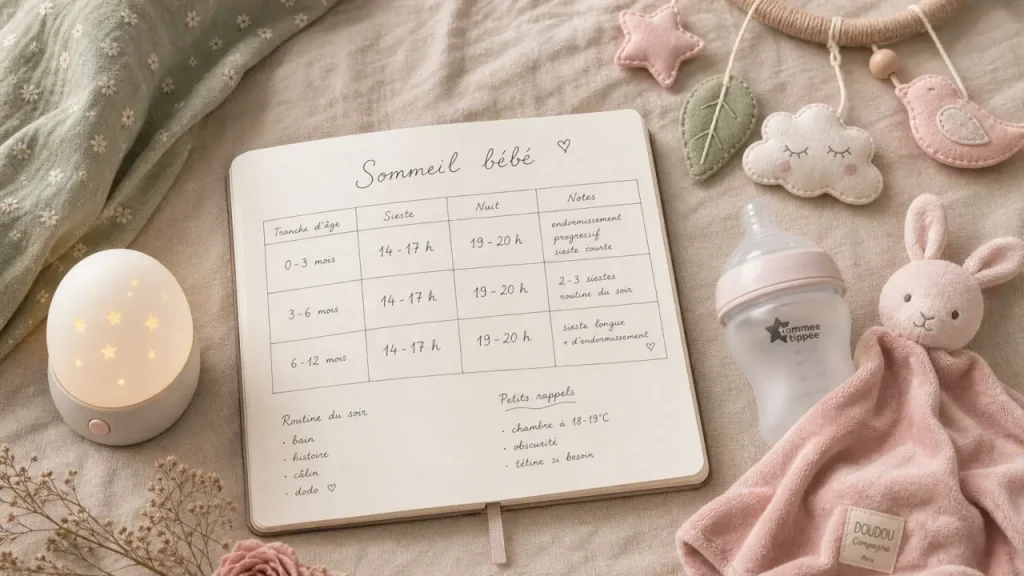 Sommeil bébé ♡
Tranche d'âge Sieste Nuit Notes
0-3 mois 14-17 h 19-20 h endormissement
progressif
sieste courte
3-6 mois 14-17 h 19-20 h 2-3 siestes
routine du soir
6-12 mois 14-17 h 19-20 h sieste longue
+ d'endormissement ♡
Routine du soir
· bain
· histoire
· câlin
· dodo ♡
Petits rappels
· chambre à 18-19°C
· obscurité
· tétine si besoin
tommee
tippee
DOUDOU
Compagnie